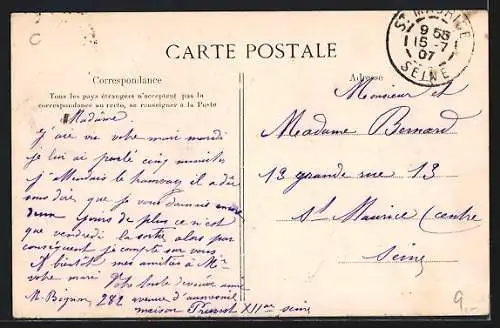 C
CARTE POSTALE
Correspondance
Tous les pays étrangers n'acceptent pas la
correspondance au recto, se renseigner à la Poste
Madame.
j'ai vu votre mari mardi
je lui ai parlé cinq minutes
j'attendais le tramway il a dû
vous dire que je vous donnais encore
deux jours de plus ce n'est
que vendredi la sortie alors par
conséquent je compte sur vous
A bientôt mes amitiés à Mr
votre mari Votre toute dévouée amie
M. Bignon, 282 avenue
maison XIIe Seine
Adresse
Monsieur et
Madame Bernard
13 grande rue 13
St Maurice (centre
Seine
ST MAURICE
9 55
15 -7
07
SEINE
9.-